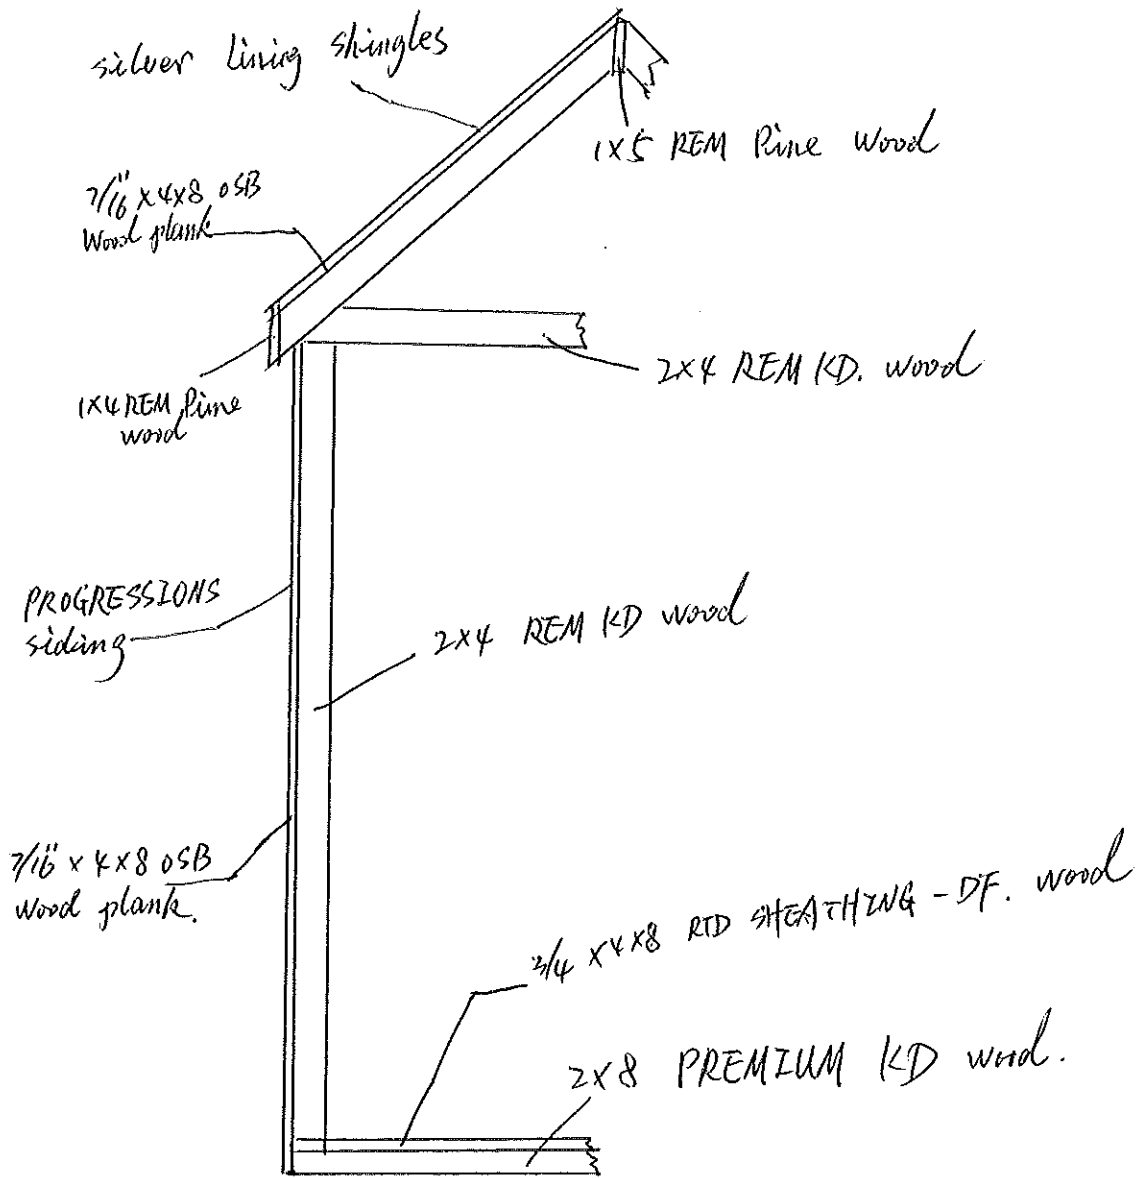 silver lining shingles
1x5 REM Pine wood
7/16" x 4x8 OSB
Wood plank
2x4 REM KD. wood
1x4 REM Pine
wood
PROGRESSIONS
siding
2x4 REM KD wood
7/16" x 4x8 OSB
Wood plank.
3/4 x 4x8 RTD SHEATHING - DF. wood
2x8 PREMIUM KD wood.